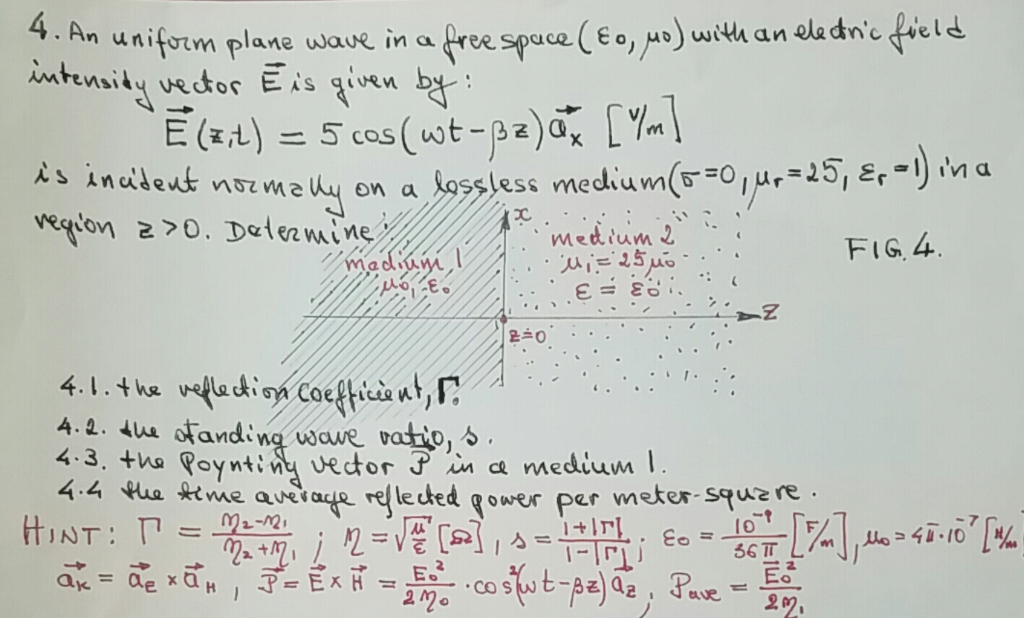 4. An uniform plane wave in a free space (ε0, μ0) with an electric field
intensity vector E⃗ is given by:
E⃗(z,t) = 5 cos(ωt - βz) a⃗x [V/m]
is incident normally on a lossless medium (σ=0, μr=25, εr=1) in a
region z>0. Determine:
x
medium 1
μ0, ε0
medium 2
μ1 = 25μ0
ε = ε0
FIG. 4.
z
z=0
4.1. the reflection coefficient, Γ.
4.2. the standing wave ratio, s.
4.3. the Poynting vector P⃗ in a medium 1.
4.4 the time average reflected power per meter-square.
HINT: Γ = (η2-η1)/(η2+η1) ; η = √(μ/ε) [Ω], s = (1+|Γ|)/(1-|Γ|) ; ε0 = 10^-9/36π [F/m], μ0 = 4π·10^-7 [H/m
a⃗k = a⃗E × a⃗H, P⃗ = E⃗ × H⃗ = E0²/2η0 · cos²(ωt-βz) a⃗z, Pave = E0²/2η1